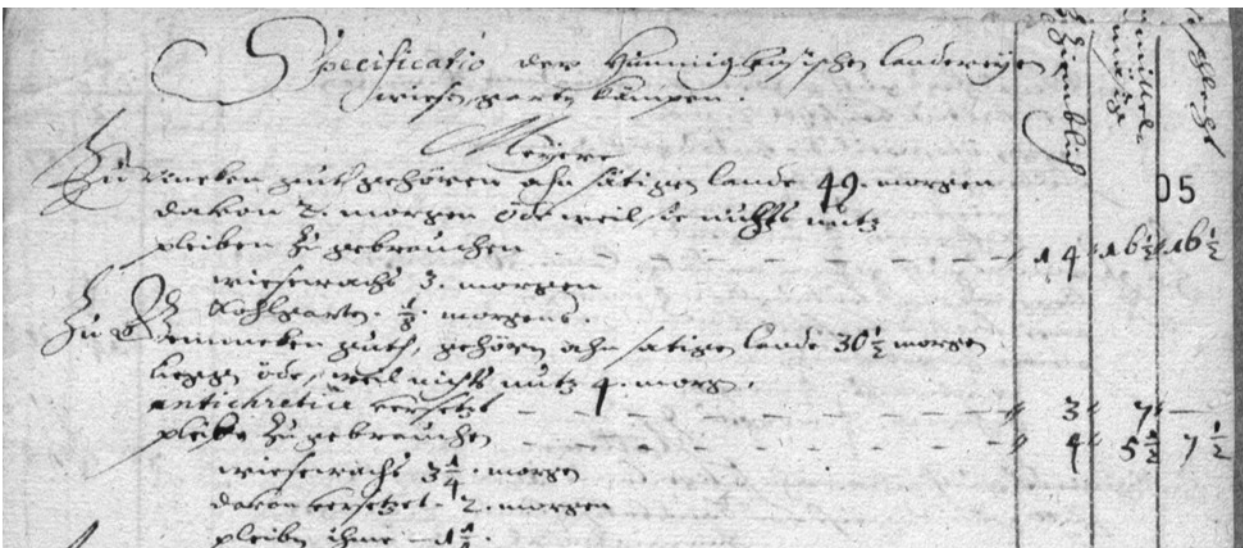 Specificatio der Hünnighausischen landereyen
wiesen, garten kämpen.
ziemblich
mittel
mäsige
schlecht
Meyere
Zu Reineken guth gehören ahn sätigen lande 49. morgen
05
davon 2. morgen öde weil sie nichts nutz
pleiben zu gebrauchen 14 16 1/2 16 1/2
wiesewachs 3. morgen
Kohlgarten 1/8 morgens.
Zu guth, gehören ahn satigen lande 30 1/2 morgen
liegen öde, weil nichts nutz 4. morg.
antichretice versetzt 3 7 —
pleibe zu gebrauchen 4 5 1/2 7 1/2
wiesewachs 3 1/4 morgen
davon versetzet 2. morgen
pleiben ihme